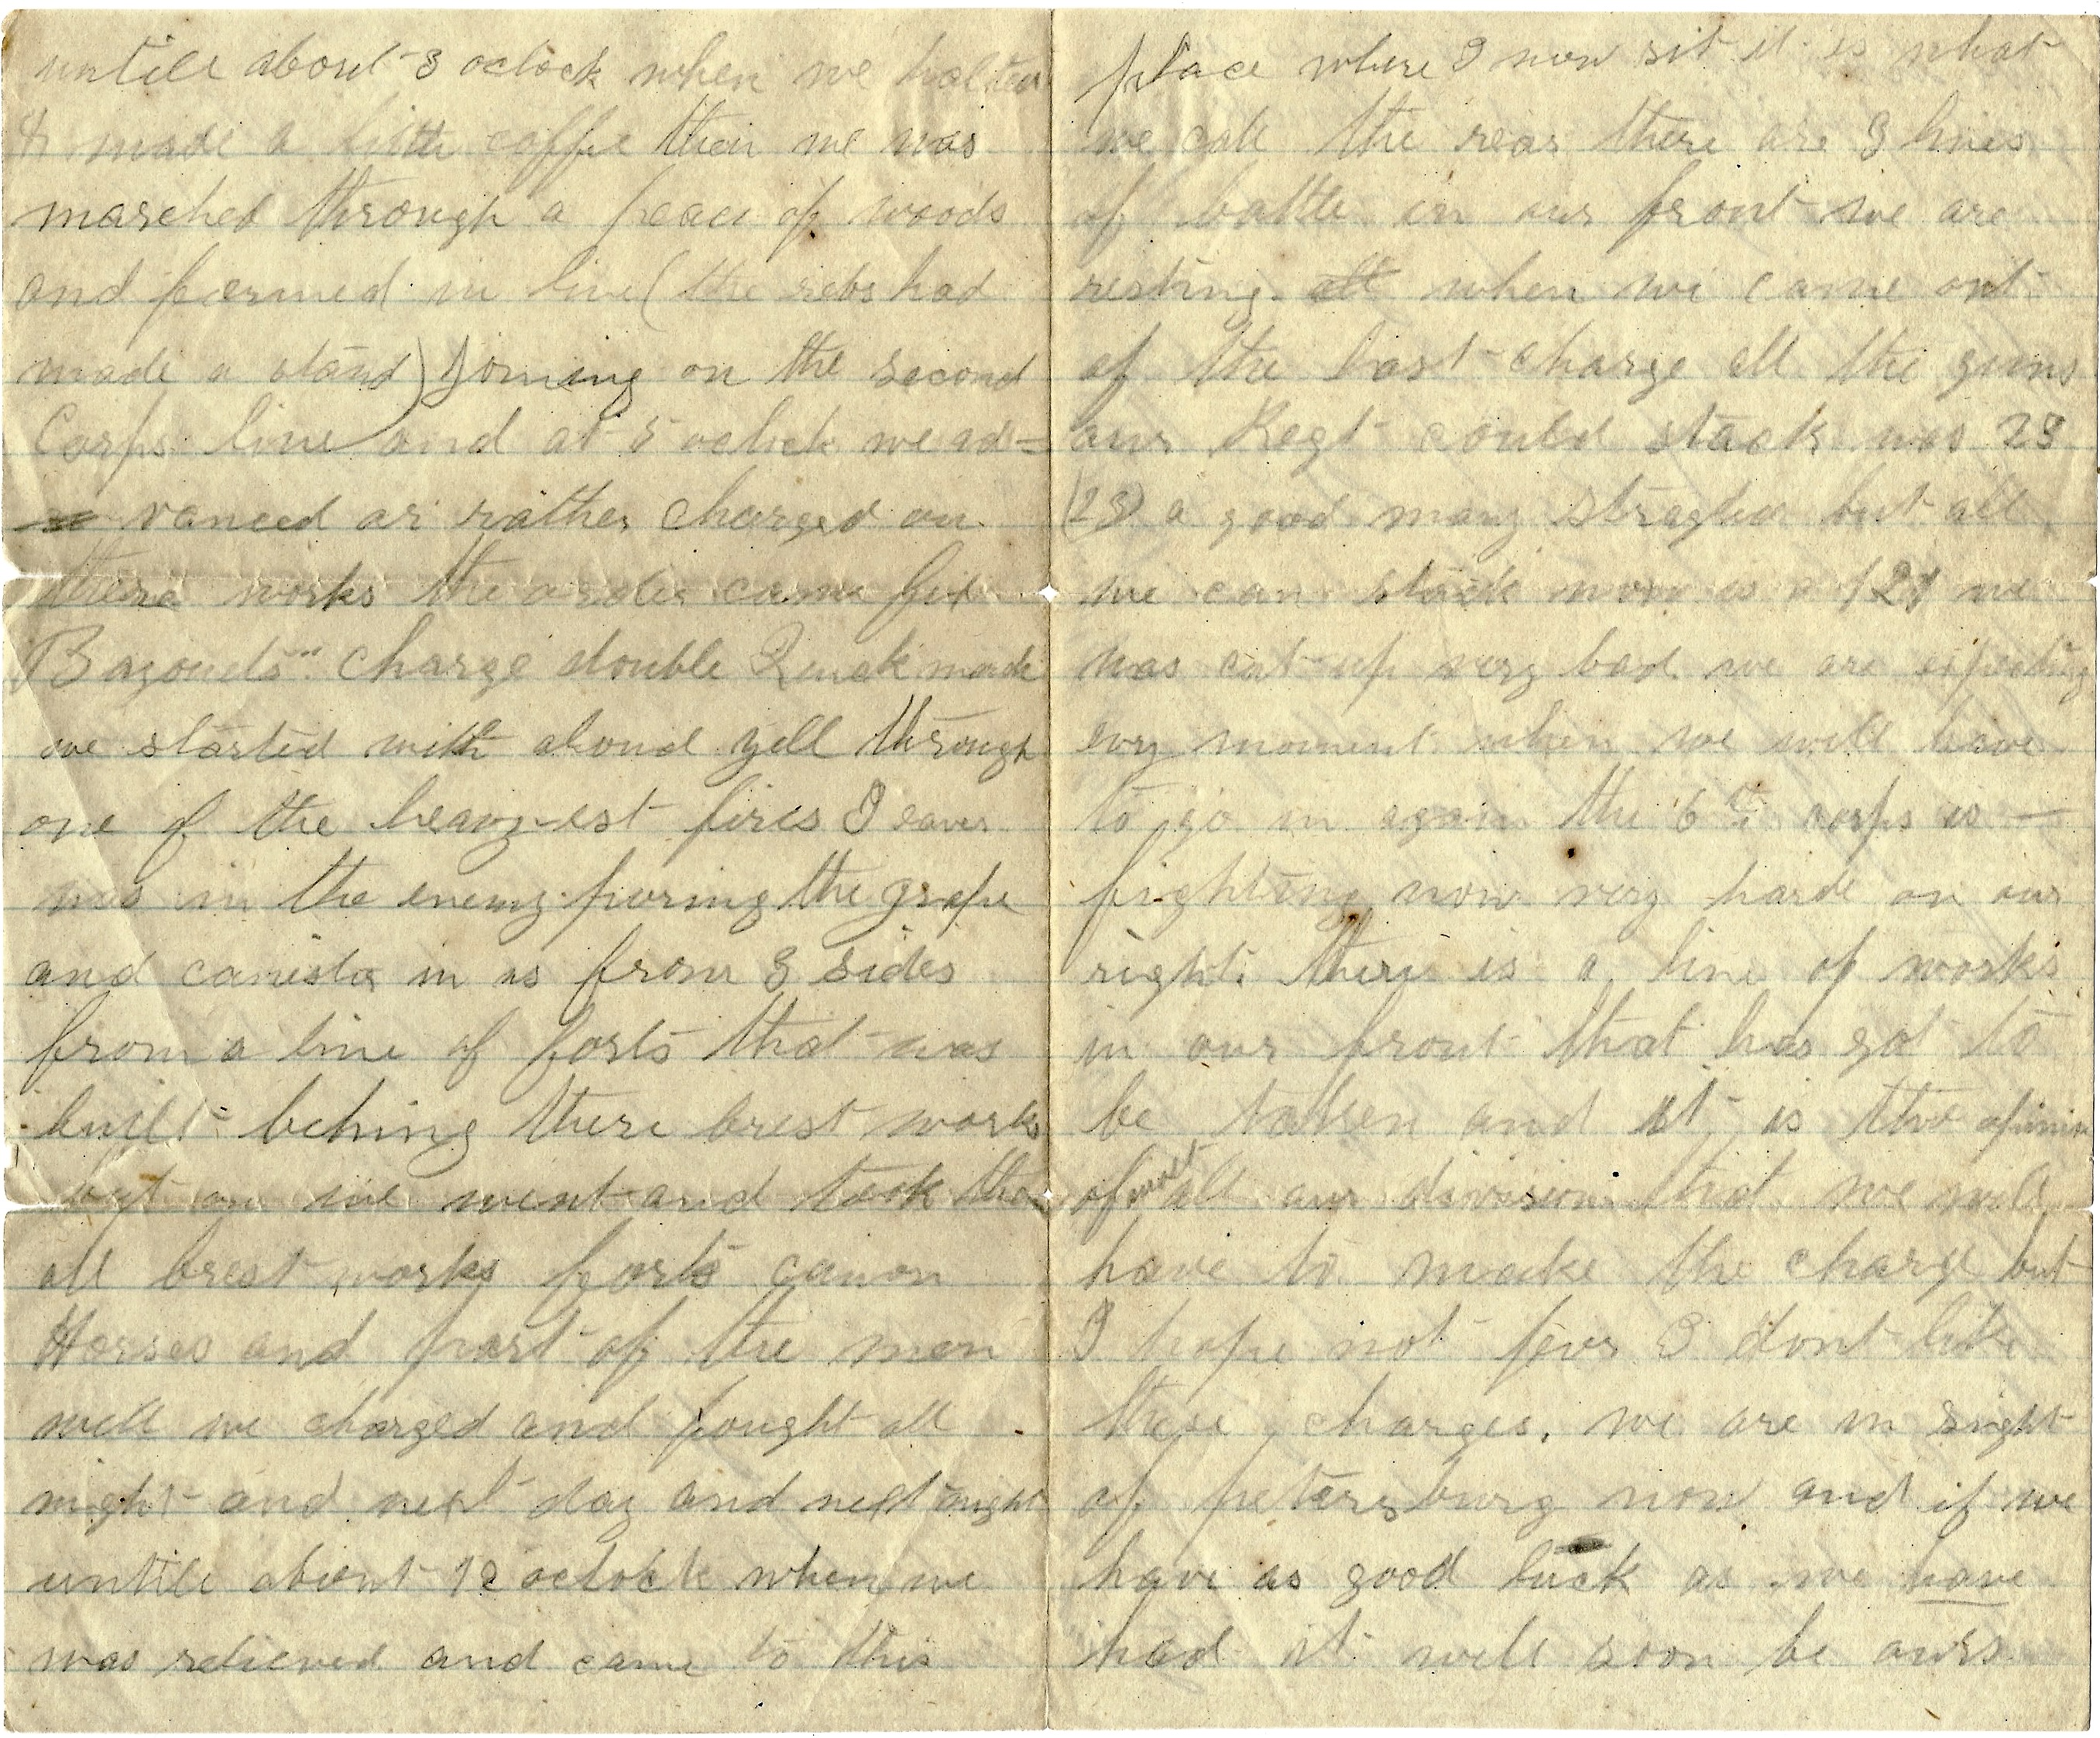 untill about 3 oclock when we halted
& made a little coffe then we was
marched through a peace of woods
and formed in line (the rebs had
made a stand) Joining on the second
Corps line and at 5 oclock we ad=
vanced or rather charged on
there works the order came fix
Bayonets" charge double Quick
we started with aloud yell through
one of the heavy-est fires I ever
was in the enemy puring the grape
and canister in us from 3 sides
from a line of forts that was
built behing there brest works
but on we went and took the
all brest works forts canon
Horses and part of the men
well we charged and fought all
night and next day and next night
untill about 12 oclock when we
was relieved and came to this
place where I now sit it is what
we call the rear there are 3 lines
of battle in our front we are
resting. all when we came out
of the last charge all the guns
our Regt could stack was 23
(23) a good many stragled but all
we can stack now is 121 we
was cut up very bad we are expecting
evry moment when we will have
to go in again the 6th corps is
fighting now very hard on our
right. there is a line of works
in our front that has got to
be taken and it is the opinion
of most all our division that we will
have to make the charge but
I hope not for I dont like
these charges. we are in sight
of petersburg now and if we
have as good luck as we have
had it will soon be ours